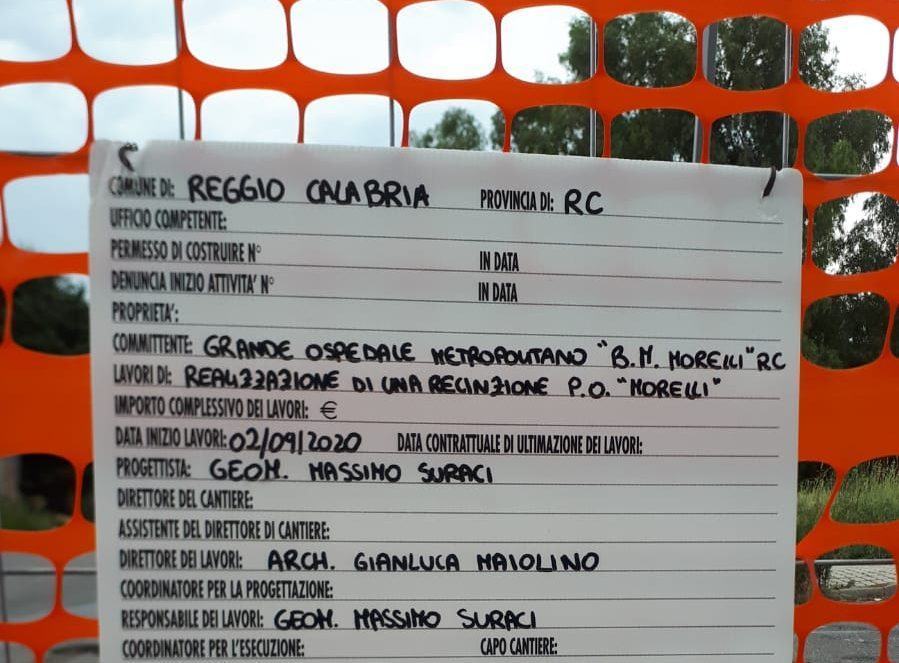 COMUNE DI: REGGIO CALABRIA PROVINCIA DI: RC
UFFICIO COMPETENTE:
PERMESSO DI COSTRUIRE N° IN DATA
DENUNCIA INIZIO ATTIVITA' N° IN DATA
PROPRIETA':
COMMITTENTE: GRANDE OSPEDALE METROPOLITANO "B.M. MORELLI" RC
LAVORI DI: REALIZZAZIONE DI UNA RECINZIONE P.O. "MORELLI"
IMPORTO COMPLESSIVO DEI LAVORI: €
DATA INIZIO LAVORI: 02/09/2020 DATA CONTRATTUALE DI ULTIMAZIONE DEI LAVORI:
PROGETTISTA: GEOM. MASSIMO SURACI
DIRETTORE DEL CANTIERE:
ASSISTENTE DEL DIRETTORE DI CANTIERE:
DIRETTORE DEI LAVORI: ARCH. GIANLUCA MAIOLINO
COORDINATORE PER LA PROGETTAZIONE:
RESPONSABILE DEI LAVORI: GEOM. MASSIMO SURACI
COORDINATORE PER L'ESECUZIONE: CAPO CANTIERE: